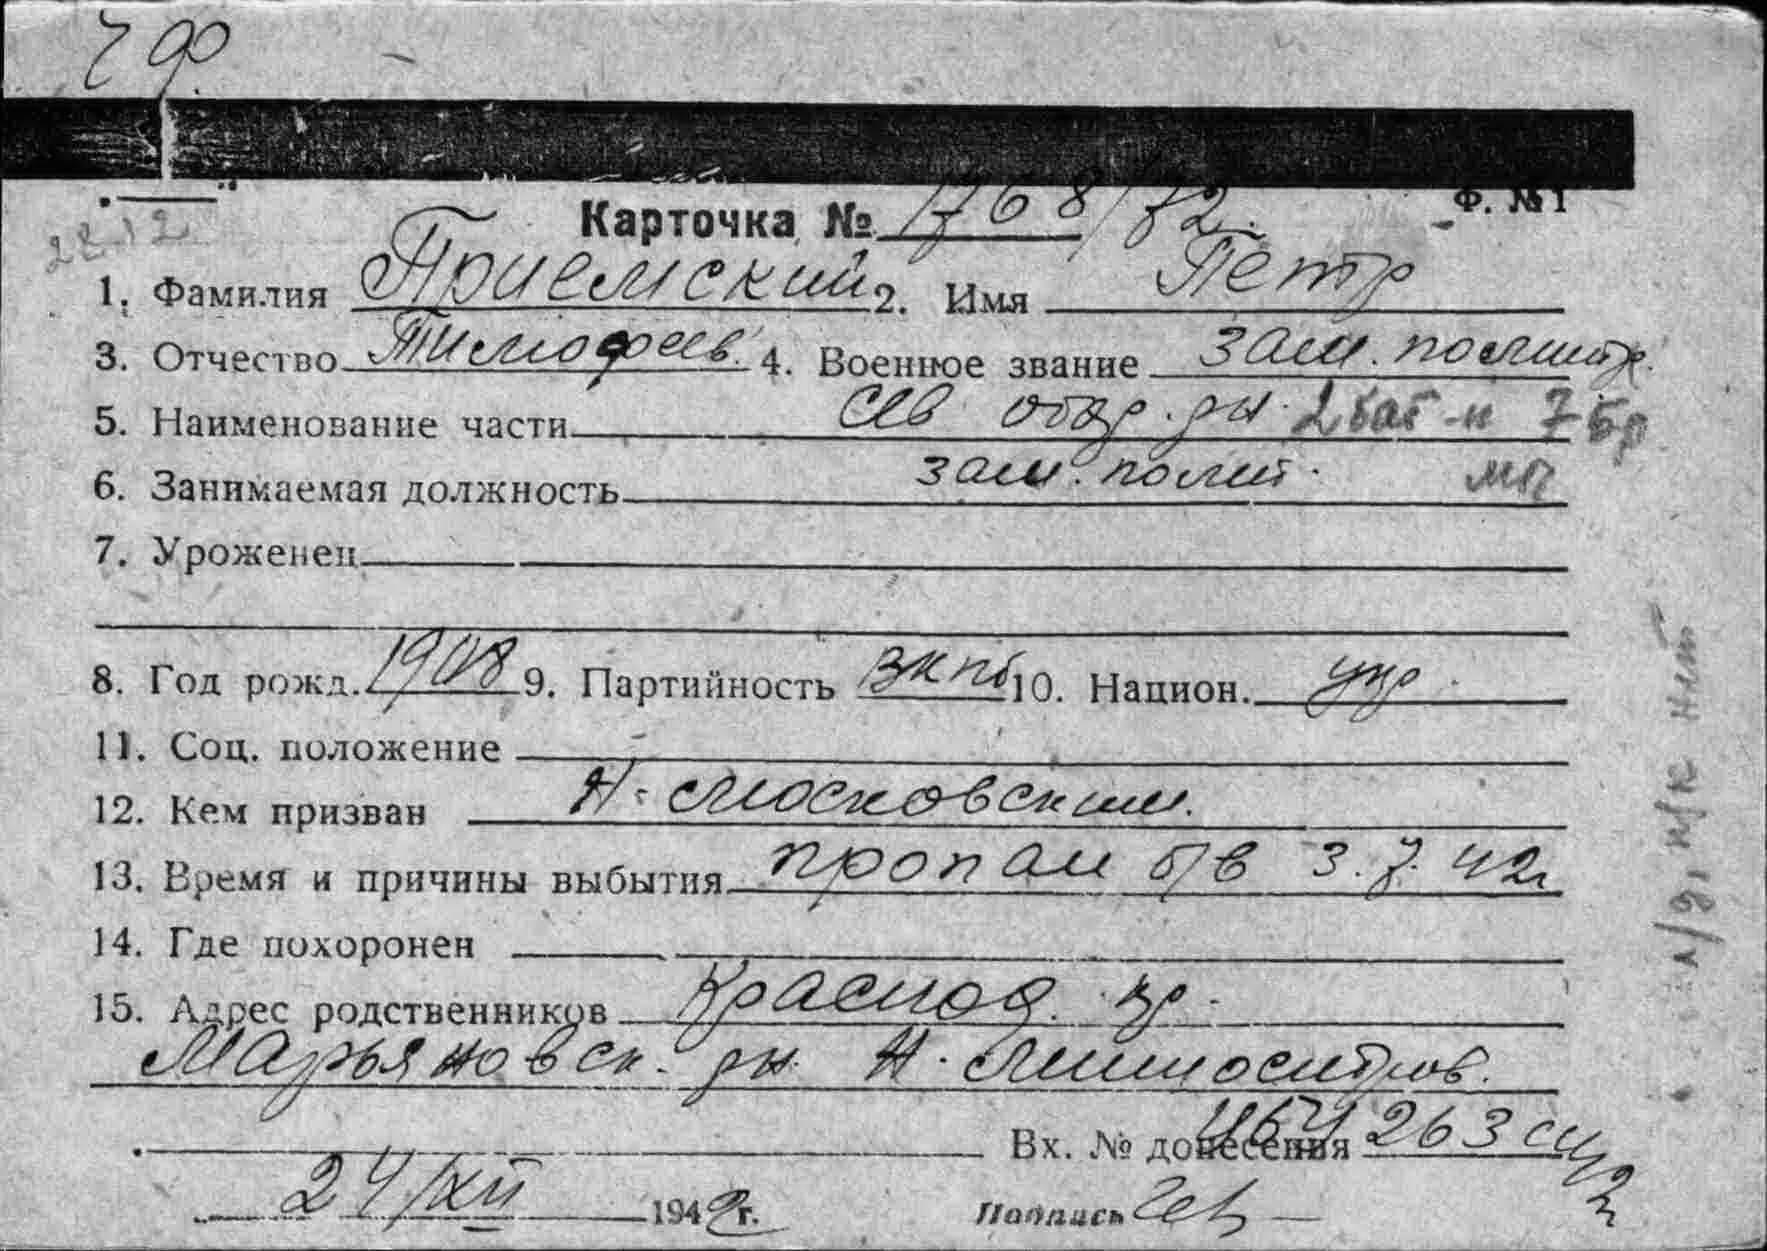 ЧФ
22.12
Ф. №1
Карточка № 1768/72.
1. Фамилия Приемский 2. Имя Петр
3. Отчество Тимофеев. 4. Военное звание зам. политр.
5. Наименование части Сев обор. рн. 2 бат-н 7 бр
6. Занимаемая должность зам. полит. мп
7. Уроженец
8. Год рожд. 1908 9. Партийность ВКПб 10. Национ. укр.
11. Соц. положение
12. Кем призван Н. Московским.
13. Время и причины выбытия пропал б/в 3.7.42г
14. Где похоронен
15. Адрес родственников Краснод. кр.
Марьяновск. рн. Н.
Вх. № донесения 263
24/XII 1942г. Подпись